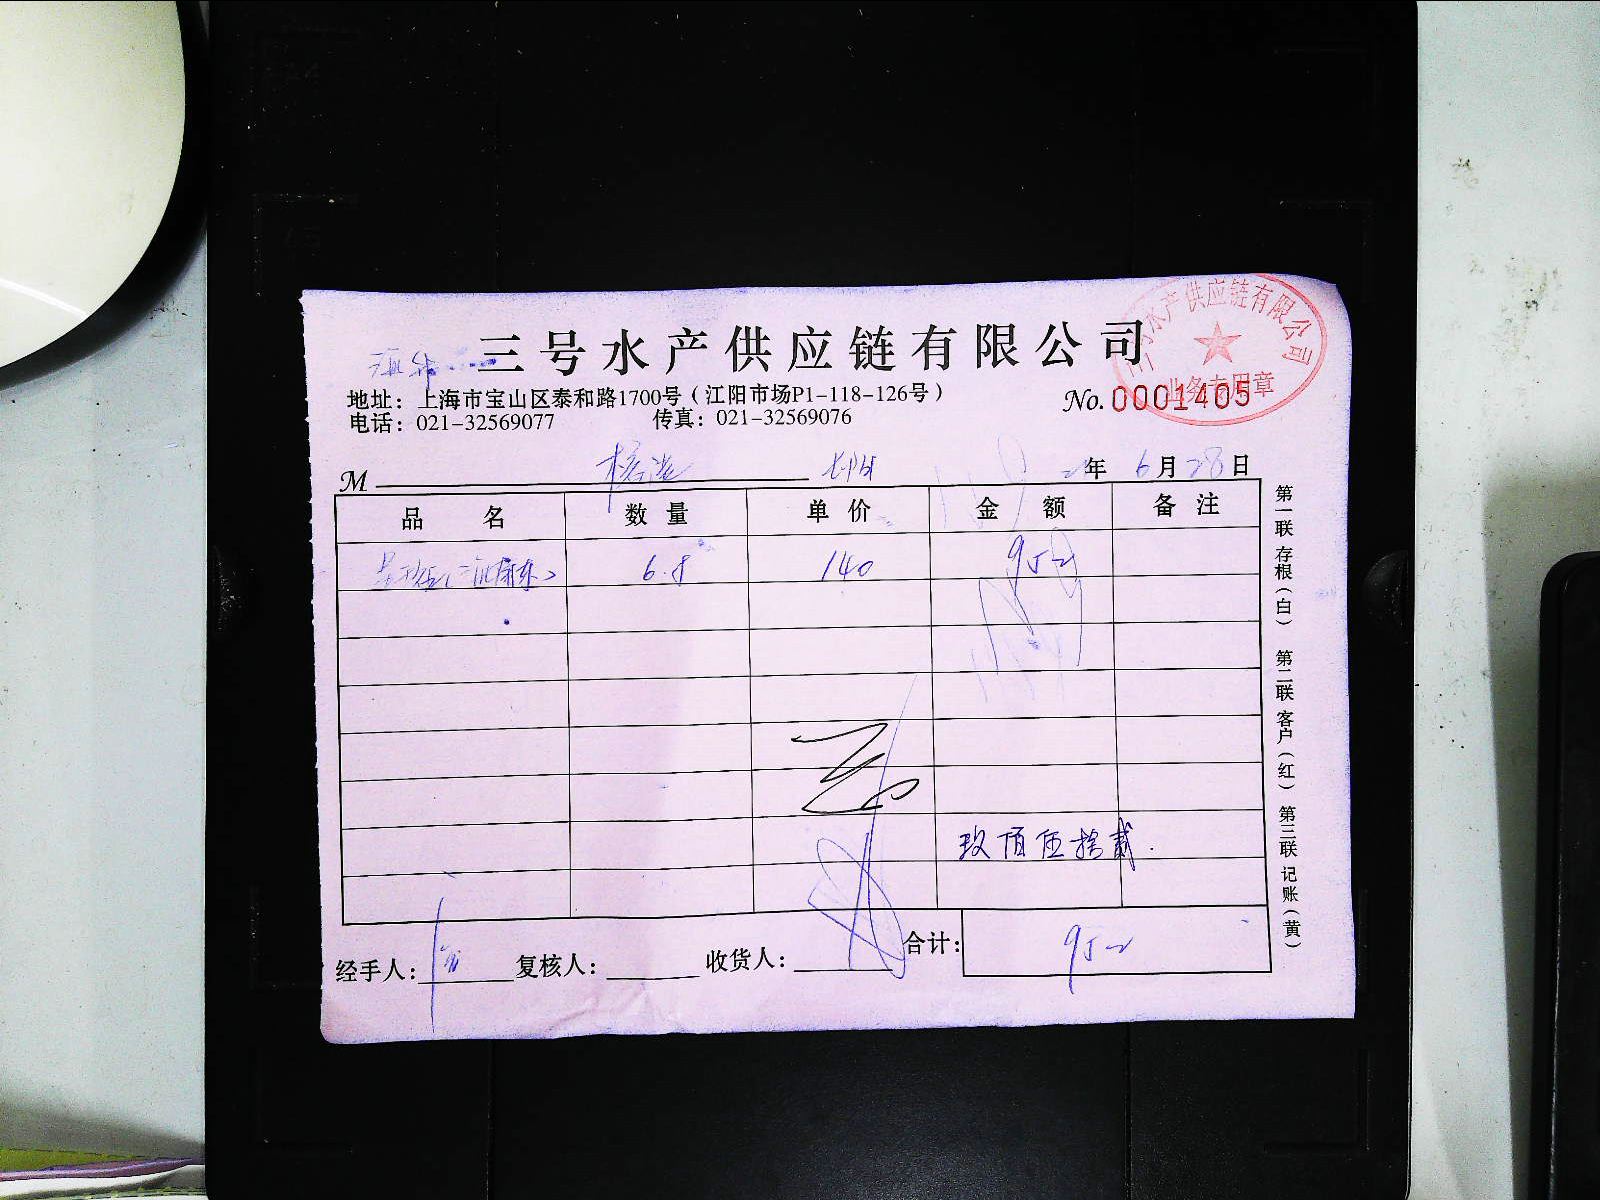 三号水产供应链有限公司
三号水产供应链有限公司
业务专用章
地址：上海市宝山区泰和路1700号（江阳市场P1-118-126号）
No. 0001405
电话：021-32569077 传真：021-32569076
M 年 6月28日
品 名 数 量 单 价 金 额 备 注
6.8 140 952
玖佰伍拾贰.
合计： 952
经手人： 复核人： 收货人：
第一联 存根（白） 第二联 客户（红） 第三联 记账（黄）